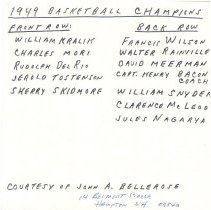 1949 BASKETBALL CHAMPIONS
FRONT ROW: BACK ROW
WILLIAM KRALIK FRANCIS WILSON
CHARLES MORI WALTER RAINVILLE
RUDOLPH DEL RIO DAVID MEERMAN
JEROLD TOSTENSON CAPT. HENRY BACON
COACH
SHERRY SKIDMORE WILLIAM SNYDER
CLARENCE MCLEOD
JULES NAGARYA
COURTESY OF JOHN A. BELLEROSE
14 BELMONT CIRCLE
HAMPTON NH 03842